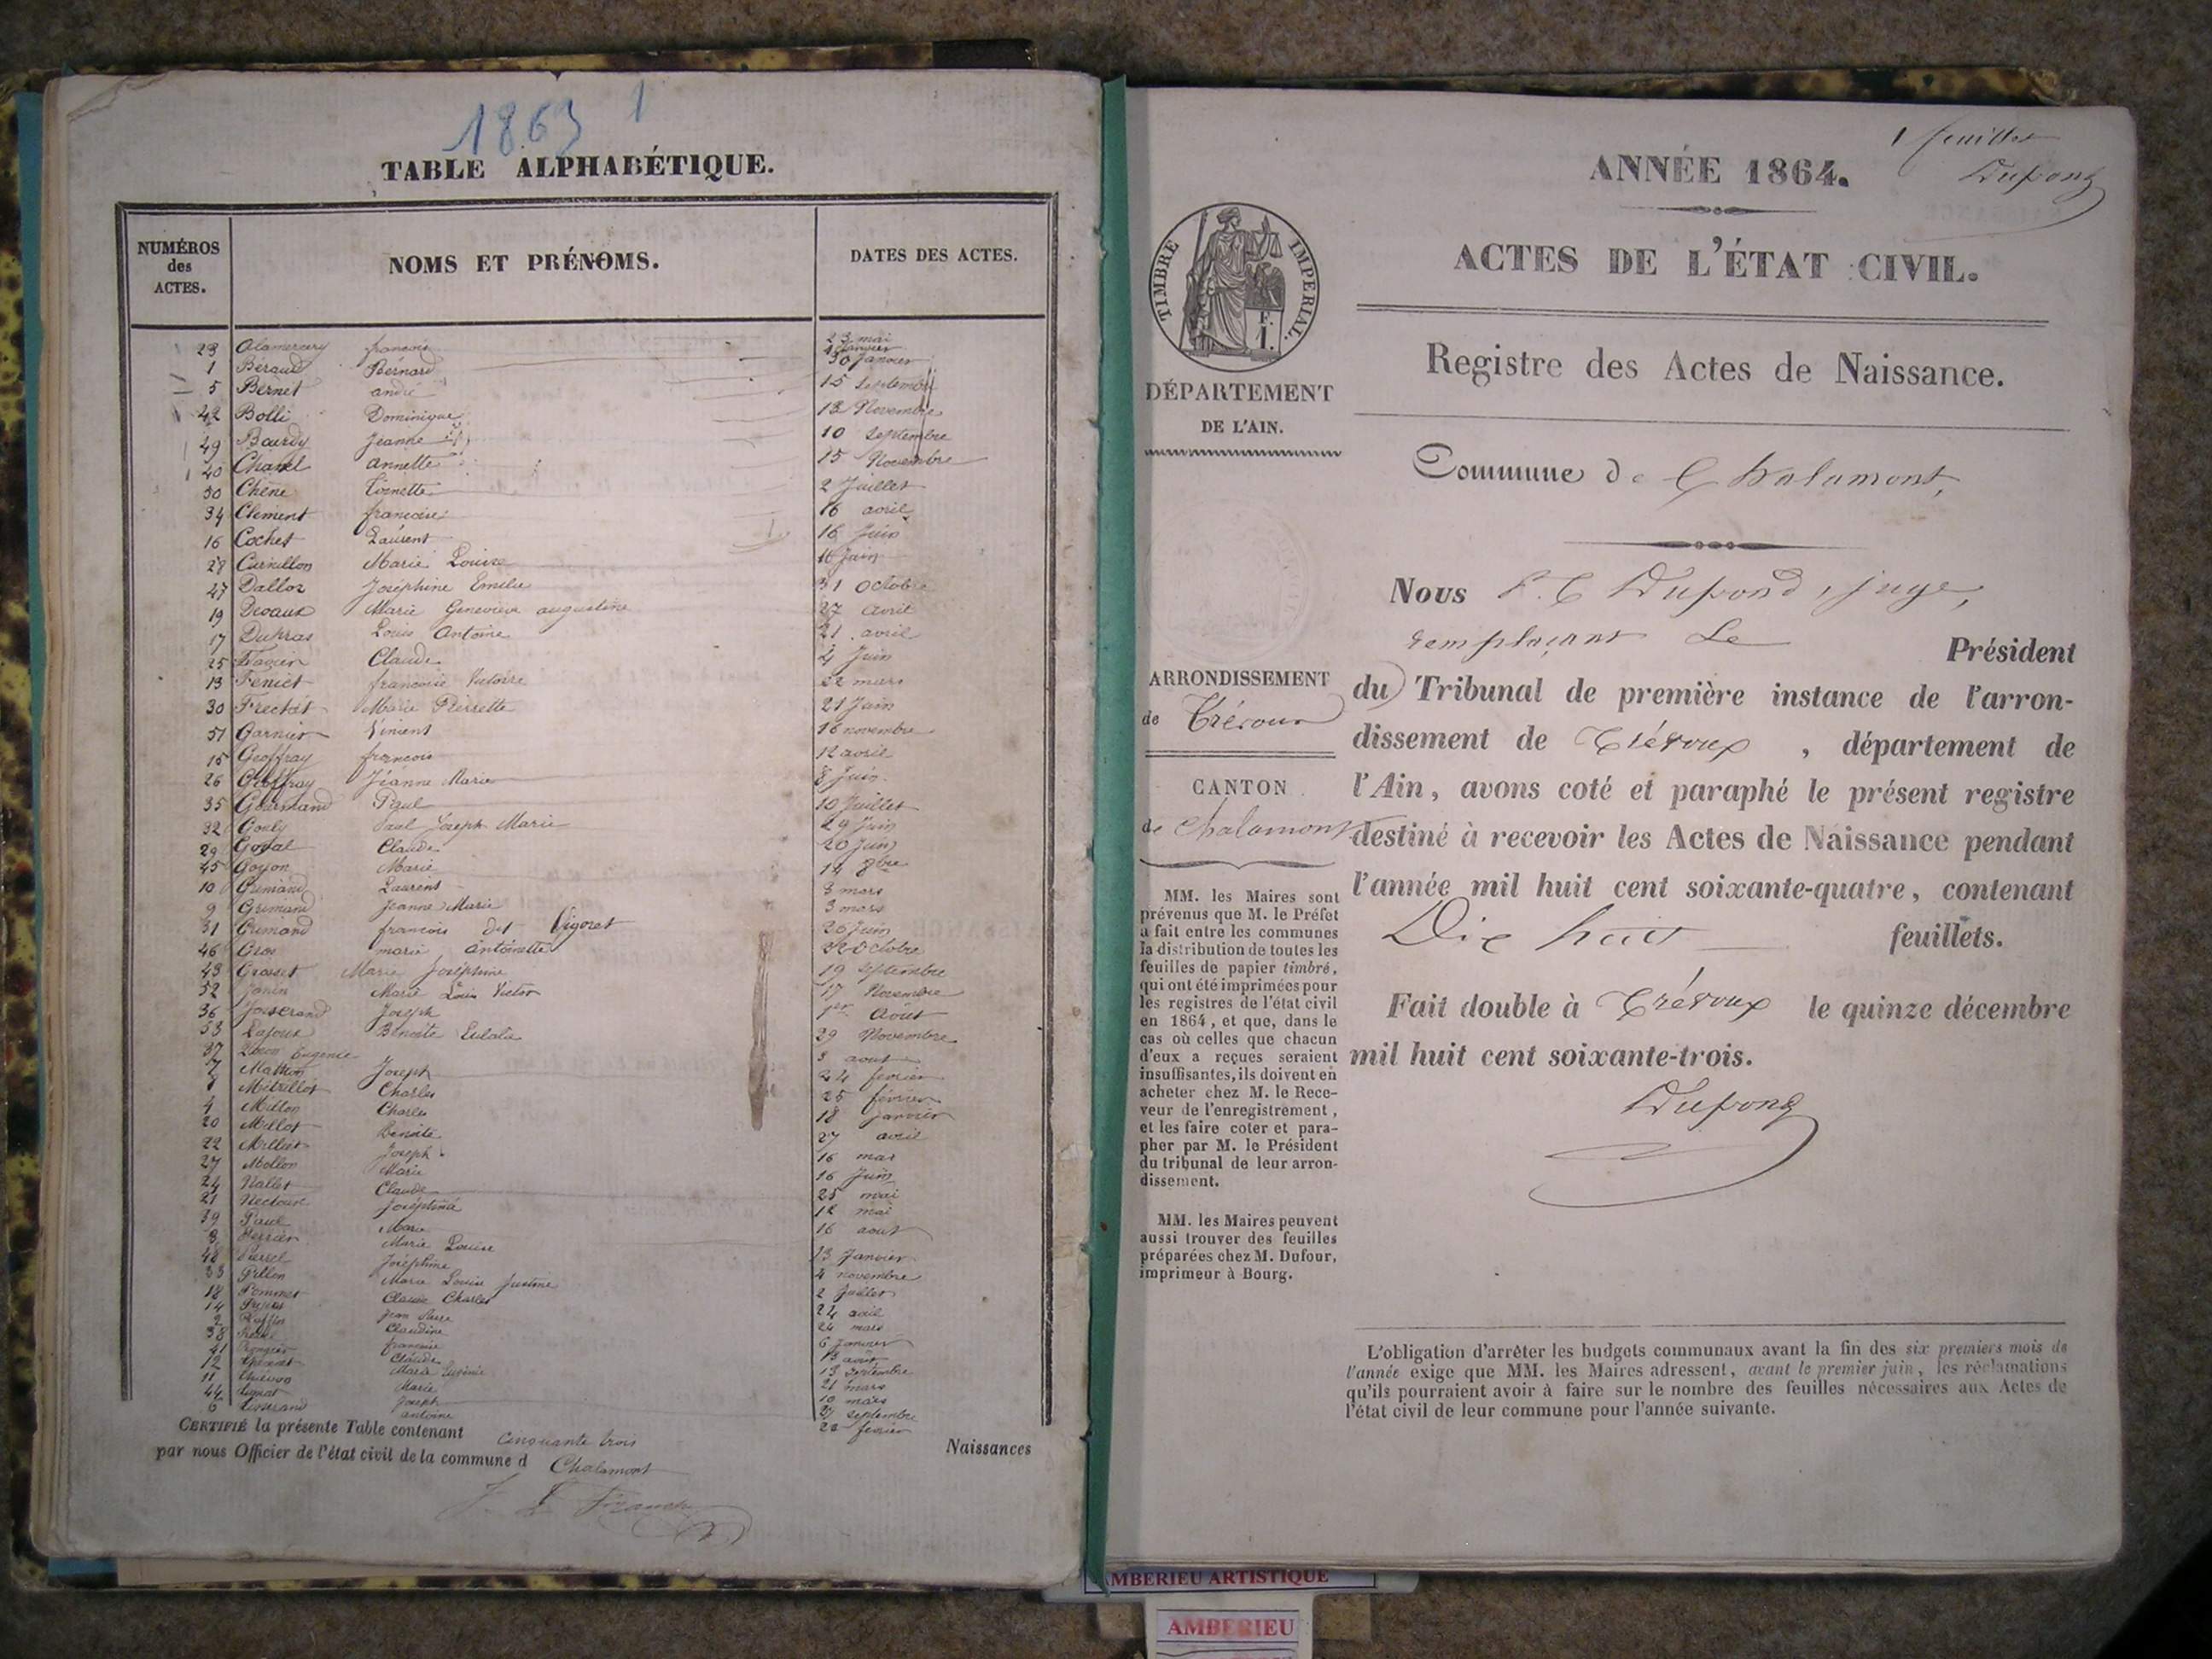 1863 1
TABLE ALPHABÉTIQUE.
NUMÉROS des ACTES. NOMS ET PRÉNOMS. DATES DES ACTES.
23 Alamercery françois 23 mai
1 Béraud Bérnard 4 Janvier
5 Bernet andré 30 Janvier
42 Bolli Dominique 15 Septembre
49 Bourdy Jeanne 13 Novembre
40 Chanel annette 10 Septembre
50 Chêne 15 Novembre
34 Clement francoise 2 Juillet
16 Cochet Laurent 16 avril
28 Curnillon Marie Louise 16 Juin
47 Dalloz Joséphine Emélie 31 Octobre
19 Devaux Marie Geneviève augustine 27 avril
17 Dupras Louis Antoine 21 avril
25 Claude 4 Juin
13 Feniet francoise Victoire 22 mars
30 Frechet Marie Pierrette 21 Juin
51 Garnier 16 novembre
15 Geoffray françois 12 avril
26 Geoffray Jéanne Marie 8 Juin
35 Gourmand Paul 10 Juillet
32 Gouly Paul Joseph Marie 29 Juin
29 Goyat Claude 20 Juin
45 Goyon Marie 14 8bre
10 Grimand Laurent 3 mars
9 Grimand Jeanne Marie 3 mars
31 Grimand francois dit Vigoret 26 Juin
46 Gros marie antoinette 22 Octobre
43 Grosset Marie Joséphine 19 Septembre
52 Janin Marie Louis Victor 17 Novembre
36 Josserand Joseph 1er Août
53 Lajoux Bénoite Eulalie 29 Novembre
37 Eugenie 3 aout
7 Mathon Joseph 24 fevrier
8 Mitrillot Charles 25 fevrier
4 Millon Charles 18 janvier
20 Millot Benoite 27 avril
22 Millet Joseph 16 mai
27 Mollon Marie 16 Juin
24 Nallet Claude 25 mai
21 Nectoux Joséphine 12 mai
39 Paul Marie 16 aout
3 Perrier Marie Louise 13 Janvier
48 Joséphine 4 novembre
33 Pillon Marie Louise Justine 2 Juillet
18 Pommet Claude Charles 24 avril
14 Jean Pierre 24 mars
2 Claudine 6 Janvier
38 francoise 13 août
41 Claude 13 Septembre
12 Marie Eugénie 21 mars
11 Marie 10 mars
44 Joseph 27 septembre
6 antoine 22 fevrier
CERTIFIÉ la présente Table contenant Cinquante trois Naissances
par nous Officier de l'état civil de la commune d Chalamont
1 feuillet
Dupond
ANNÉE 1864.
ACTES DE L'ÉTAT CIVIL.
TIMBRE IMPERIAL.
F.
1.
Registre des Actes de Naissance.
DÉPARTEMENT
DE L'AIN.
Commune de Chalamont,
ARRONDISSEMENT
de Trévoux
CANTON
de Chalamont
MM. les Maires sont
prévenus que M. le Préfet
a fait entre les communes
la distribution de toutes les
feuilles de papier timbré,
qui ont été imprimées pour
les registres de l'état civil
en 1864, et que, dans le
cas où celles que chacun
d'eux a reçues seraient
insuffisantes, ils doivent en
acheter chez M. le Rece-
veur de l'enregistrement,
et les faire coter et para-
pher par M. le Président
du tribunal de leur arron-
dissement.
MM. les Maires peuvent
aussi trouver des feuilles
préparées chez M. Dufour,
imprimeur à Bourg.
Nous Dupond, juge,
remplaçant Le Président
du Tribunal de première instance de l'arron-
dissement de Trévoux, département de
l'Ain, avons coté et paraphé le présent registre
destiné à recevoir les Actes de Naissance pendant
l'année mil huit cent soixante-quatre, contenant
Dix huit feuillets.
Fait double à Trévoux le quinze décembre
mil huit cent soixante-trois.
Dupond
L'obligation d'arrêter les budgets communaux avant la fin des six premiers mois de
l'année exige que MM. les Maires adressent, avant le premier juin, les réclamations
qu'ils pourraient avoir à faire sur le nombre des feuilles nécessaires aux Actes de
l'état civil de leur commune pour l'année suivante.
AMBERIEU ARTISTIQUE
AMBERIEU